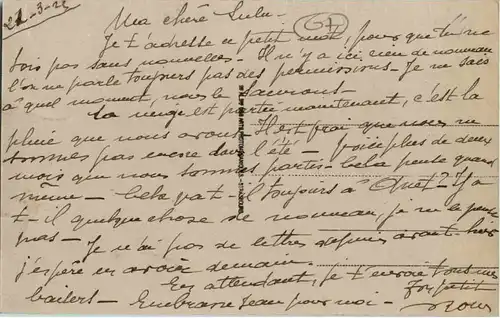 22-3-22
Ma chère Lulu.
Je t'adresse ce petit mot, pour que tu ne
sois pas sans nouvelles - Il n'y a ici rien de nouveau
l'on ne parle toujours pas des permissions - Je ne sais
à quel moment, nous les aurons -
La neige est partie maintenant, c'est la
pluie que nous avons - Il est vrai que nous ne
sommes pas encore dans l'été - Voici plus de deux
mois que nous sommes partis - Cela passe quand
même - Cela va-t-il toujours à Quet? Y a
t-il quelque chose de nouveau, je ne le pense
pas - Je n'ai pas de lettres depuis avant-hier
j'espère en avoir demain.
En attendant, je t'envoie tous mes
baisers - Embrasse Jean pour moi - Ton petit